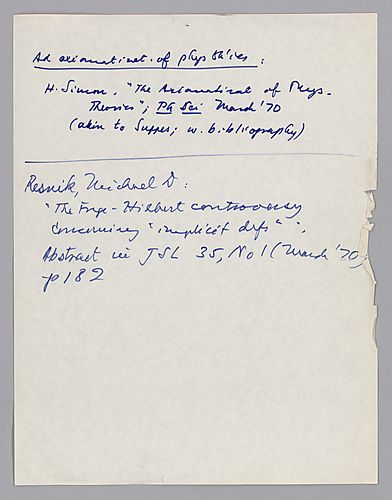 Ad axiomatizat. of phys th'ies :
H. Simon, "The Axiomatizat of Phys.
Theories"; Ph Sci March '70
(akin to Suppes; w. bibliography)
Resnik, Michael D :
"The Frege - Hilbert controversy
concerning "implicit defs" ",
Abstract in JSL 35, No 1 (March '70)
p 182